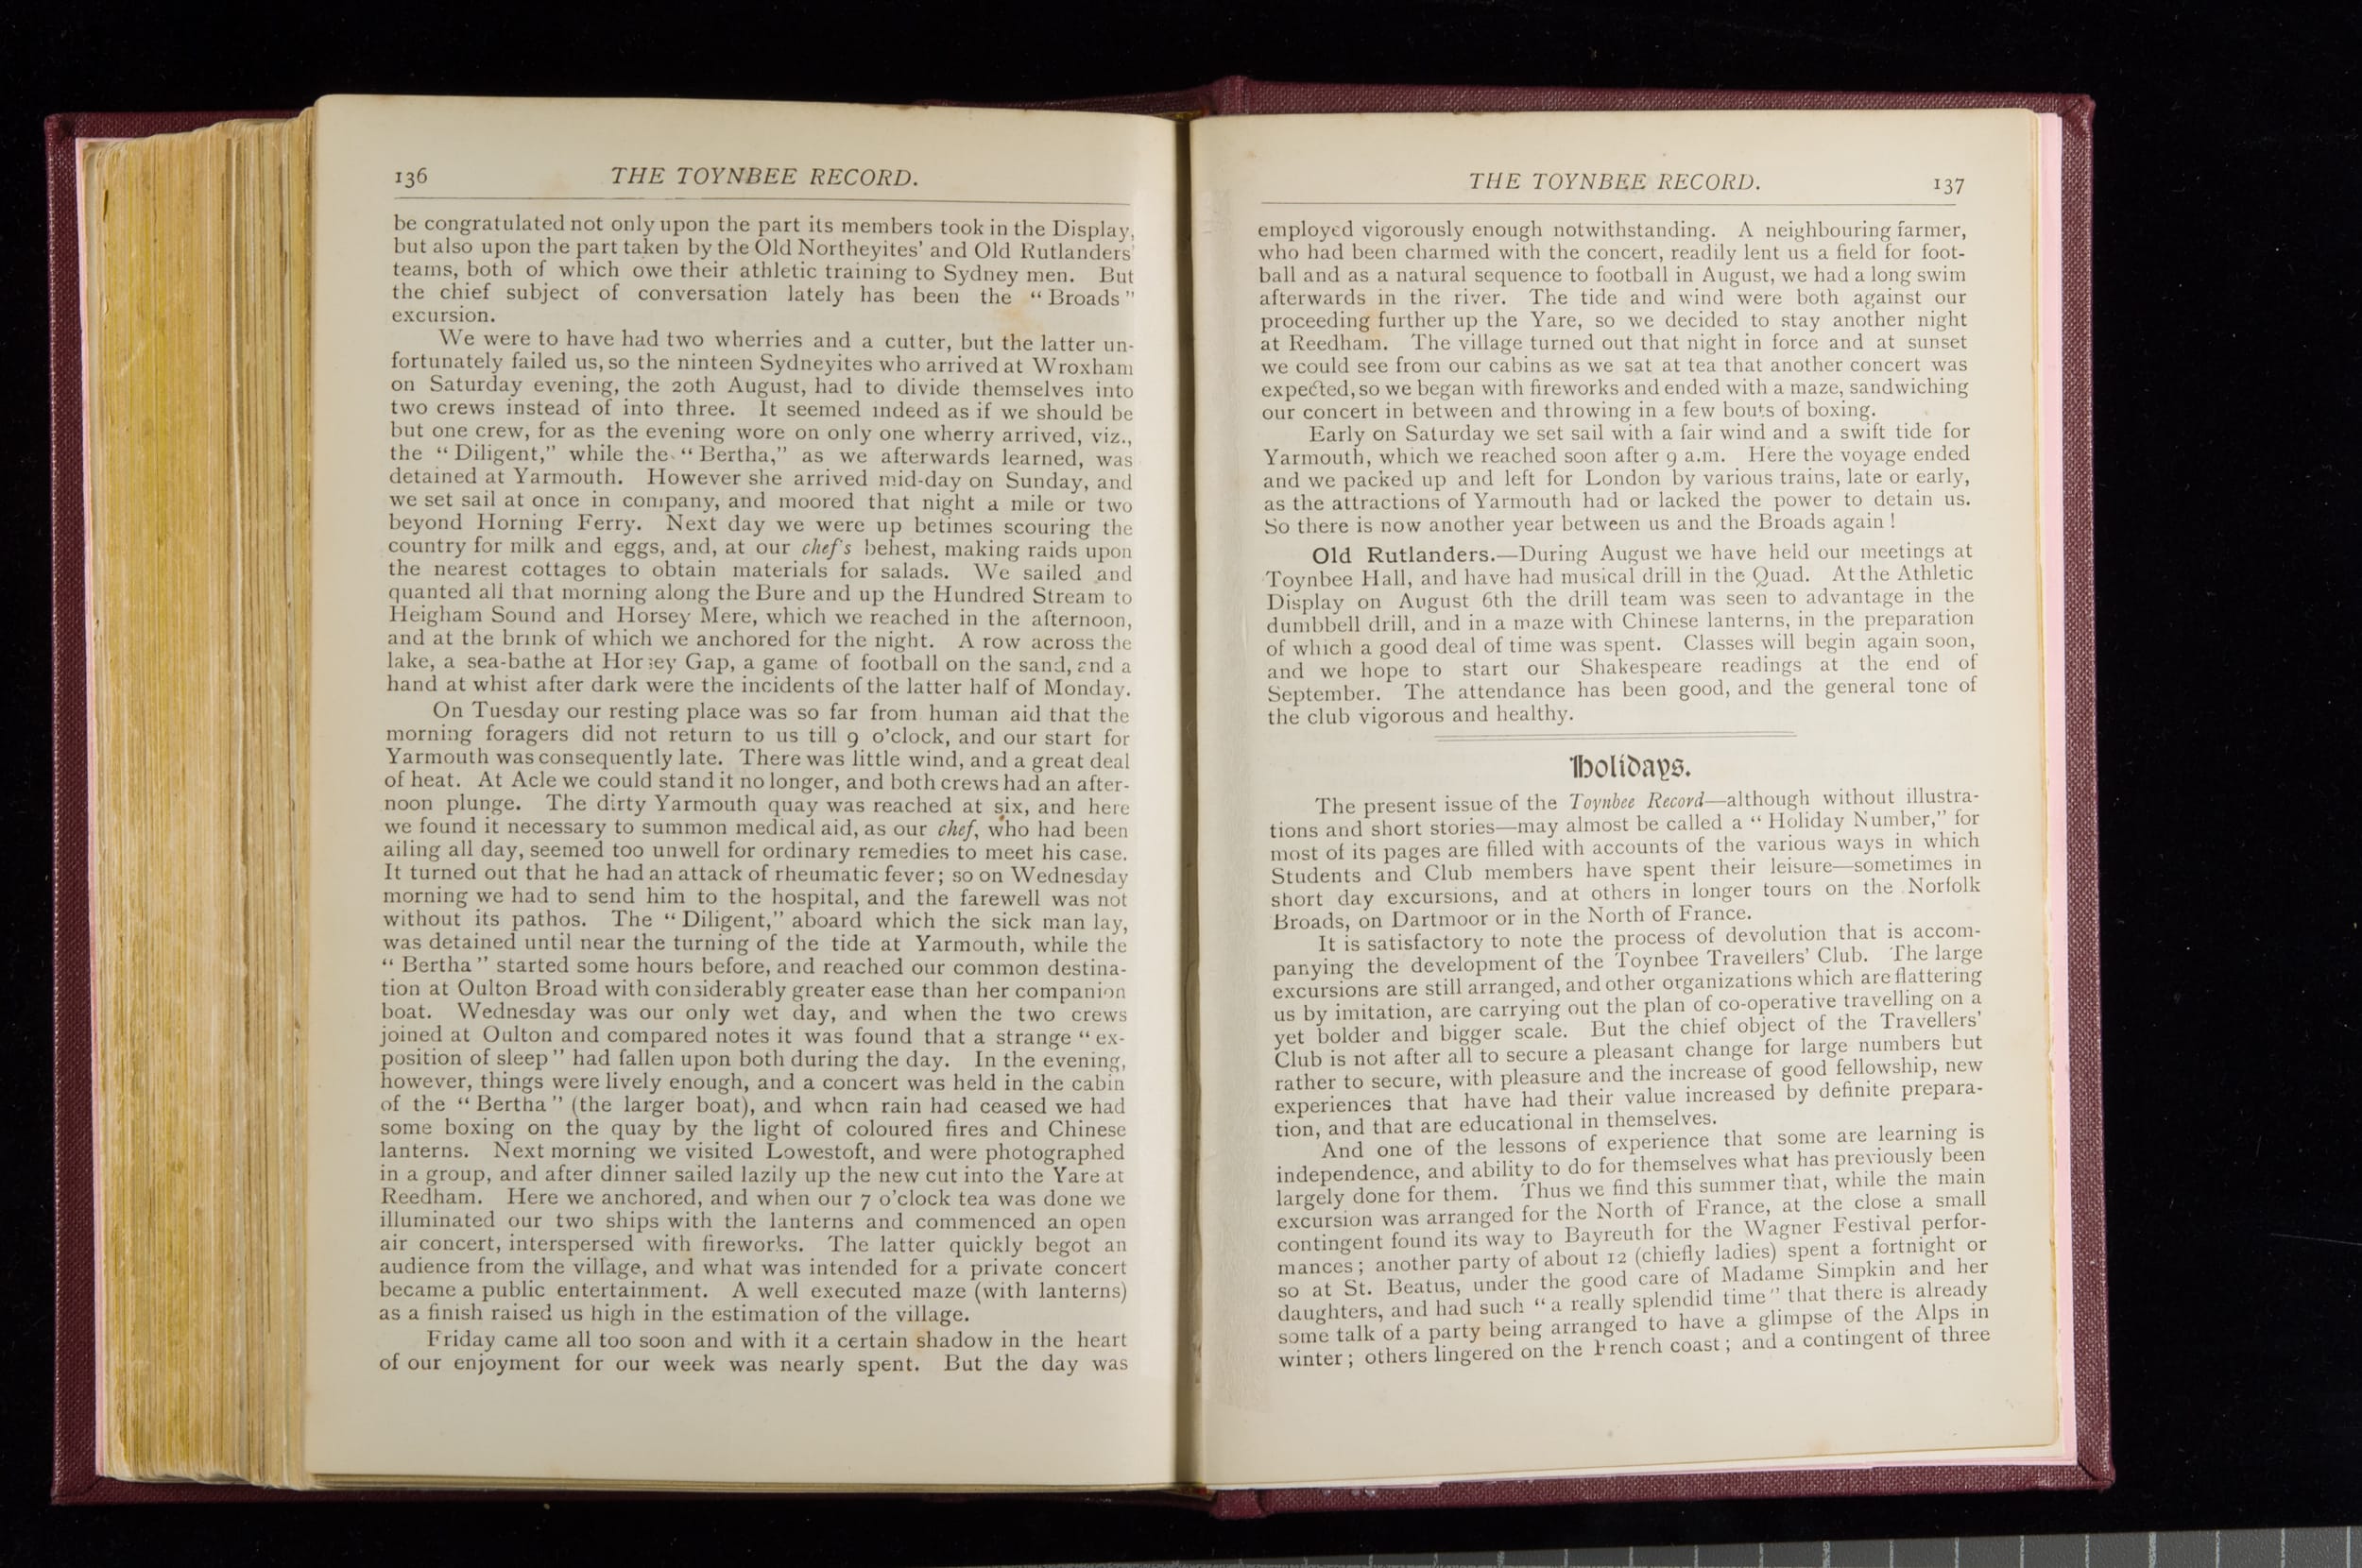 136 THE TOYNBEE RECORD.
be congratulated not only upon the part its members took in the Display,
but also upon the part taken by the Old Northeyites' and Old Rutlanders'
teams, both of which owe their athletic training to Sydney men. But
the chief subject of conversation lately has been the “Broads”
excursion.
We were to have had two wherries and a cutter, but the latter un-
fortunately failed us, so the ninteen Sydneyites who arrived at Wroxham
on Saturday evening, the 20th August, had to divide themselves into
two crews instead of into three. It seemed indeed as if we should be
but one crew, for as the evening wore on only one wherry arrived, viz.,
the “Diligent,” while the “Bertha,” as we afterwards learned, was
detained at Yarmouth. However she arrived mid-day on Sunday, and
we set sail at once in company, and moored that night a mile or two
beyond Horning Ferry. Next day we were up betimes scouring the
country for milk and eggs, and, at our chef's behest, making raids upon
the nearest cottages to obtain materials for salads. We sailed and
quanted all that morning along the Bure and up the Hundred Stream to
Heigham Sound and Horsey Mere, which we reached in the afternoon,
and at the brink of which we anchored for the night. A row across the
lake, a sea-bathe at Horsey Gap, a game of football on the sand, and a
hand at whist after dark were the incidents of the latter half of Monday.
On Tuesday our resting place was so far from human aid that the
morning foragers did not return to us till 9 o'clock, and our start for
Yarmouth was consequently late. There was little wind, and a great deal
of heat. At Acle we could stand it no longer, and both crews had an after-
noon plunge. The dirty Yarmouth quay was reached at six, and here
we found it necessary to summon medical aid, as our chef, who had been
ailing all day, seemed too unwell for ordinary remedies to meet his case.
It turned out that he had an attack of rheumatic fever; so on Wednesday
morning we had to send him to the hospital, and the farewell was not
without its pathos. The “Diligent,” aboard which the sick man lay,
was detained until near the turning of the tide at Yarmouth, while the
“Bertha” started some hours before, and reached our common destina-
tion at Oulton Broad with considerably greater ease than her companion
boat. Wednesday was our only wet day, and when the two crews
joined at Oulton and compared notes it was found that a strange “ex-
position of sleep” had fallen upon both during the day. In the evening,
however, things were lively enough, and a concert was held in the cabin
of the “Bertha” (the larger boat), and when rain had ceased we had
some boxing on the quay by the light of coloured fires and Chinese
lanterns. Next morning we visited Lowestoft, and were photographed
in a group, and after dinner sailed lazily up the new cut into the Yare at
Reedham. Here we anchored, and when our 7 o'clock tea was done we
illuminated our two ships with the lanterns and commenced an open
air concert, interspersed with fireworks. The latter quickly begot an
audience from the village, and what was intended for a private concert
became a public entertainment. A well executed maze (with lanterns)
as a finish raised us high in the estimation of the village.
Friday came all too soon and with it a certain shadow in the heart
of our enjoyment for our week was nearly spent. But the day was
THE TOYNBEE RECORD. 137
employed vigorously enough notwithstanding. A neighbouring farmer,
who had been charmed with the concert, readily lent us a field for foot-
ball and as a natural sequence to football in August, we had a long swim
afterwards in the river. The tide and wind were both against our
proceeding further up the Yare, so we decided to stay another night
at Reedham. The village turned out that night in force and at sunset
we could see from our cabins as we sat at tea that another concert was
expected, so we began with fireworks and ended with a maze, sandwiching
our concert in between and throwing in a few bouts of boxing.
Early on Saturday we set sail with a fair wind and a swift tide for
Yarmouth, which we reached soon after 9 a.m. Here the voyage ended
and we packed up and left for London by various trains, late or early,
as the attractions of Yarmouth had or lacked the power to detain us.
So there is now another year between us and the Broads again!
Old Rutlanders.—During August we have held our meetings at
Toynbee Hall, and have had musical drill in the Quad. At the Athletic
Display on August 6th the drill team was seen to advantage in the
dumbbell drill, and in a maze with Chinese lanterns, in the preparation
of which a good deal of time was spent. Classes will begin again soon,
and we hope to start our Shakespeare readings at the end of
September. The attendance has been good, and the general tone of
the club vigorous and healthy.
Holidays.
The present issue of the Toynbee Record—although without illustra-
tions and short stories—may almost be called a “Holiday Number,” for
most of its pages are filled with accounts of the various ways in which
Students and Club members have spent their leisure—sometimes in
short day excursions, and at others in longer tours on the Norfolk
Broads, on Dartmoor or in the North of France.
It is satisfactory to note the process of devolution that is accom-
panying the development of the Toynbee Travellers' Club. The large
excursions are still arranged, and other organizations which are flattering
us by imitation, are carrying out the plan of co-operative travelling on a
yet bolder and bigger scale. But the chief object of the Travellers'
Club is not after all to secure a pleasant change for large numbers but
rather to secure, with pleasure and the increase of good fellowship, new
experiences that have had their value increased by definite prepara-
tion, and that are educational in themselves.
And one of the lessons of experience that some are learning is
independence, and ability to do for themselves what has previously been
largely done for them. Thus we find this summer that, while the main
excursion was arranged for the North of France, at the close a small
contingent found its way to Bayreuth for the Wagner Festival perfor-
mances; another party of about 12 (chiefly ladies) spent a fortnight or
so at St. Beatus, under the good care of Madame Simpkin and her
daughters, and had such “a really splendid time” that there is already
some talk of a party being arranged to have a glimpse of the Alps in
winter; others lingered on the French coast; and a contingent of three